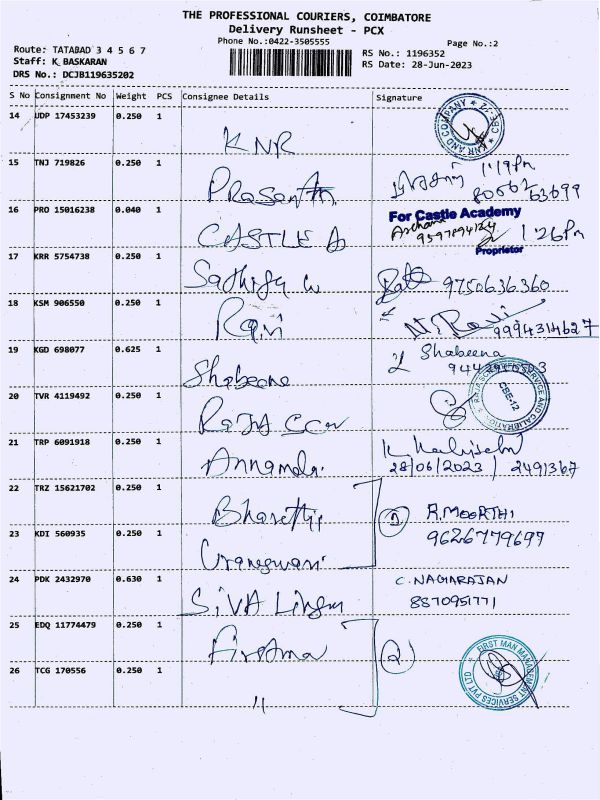 THE PROFESSIONAL COURIERS, COIMBATORE
Delivery Runsheet - PCX
Phone No.:0422-3505555
Page No.:2
Route: TATABAD 3 4 5 6 7
Staff: K BASKARAN
DRS No.: DCJB119635202
RS No.: 1196352
RS Date: 28-Jun-2023
S No Consignment No Weight PCS Consignee Details Signature
14 UDP 17453239 0.250 1 KNR
KNR AND COMPANY
15 TNJ 719826 0.250 1 Prasanth 1'19Pm
80562 63699
16 PRO 15016238 0.040 1 CASTLE A
For Castle Academy
Archana
9597894124 1'26Pm
Proprietor
17 KRR 5754738 0.250 1 9750636360
18 KSM 906550 0.250 1 Rani N. Ravi
9994314627
19 KGD 698077 0.625 1 Shabeena Shabeena
20 TVR 4119492 0.250 1 RAJA
SERVICE AND CALIBRATION
CBE-12
21 TRP 6091918 0.250 1 Annamalai
28/06/2023 | 2491367
22 TRZ 15621702 0.250 1 R. MOORTHI
23 KDI 560935 0.250 1 9626779697
24 PDK 2432970 0.630 1 SIVA Lingam C. NAGARAJAN
8870951771
25 EDQ 11774479 0.250 1 2
FIRST MAN MANAGEMENT SERVICES PVT LTD
26 TCG 170556 0.250 1 "